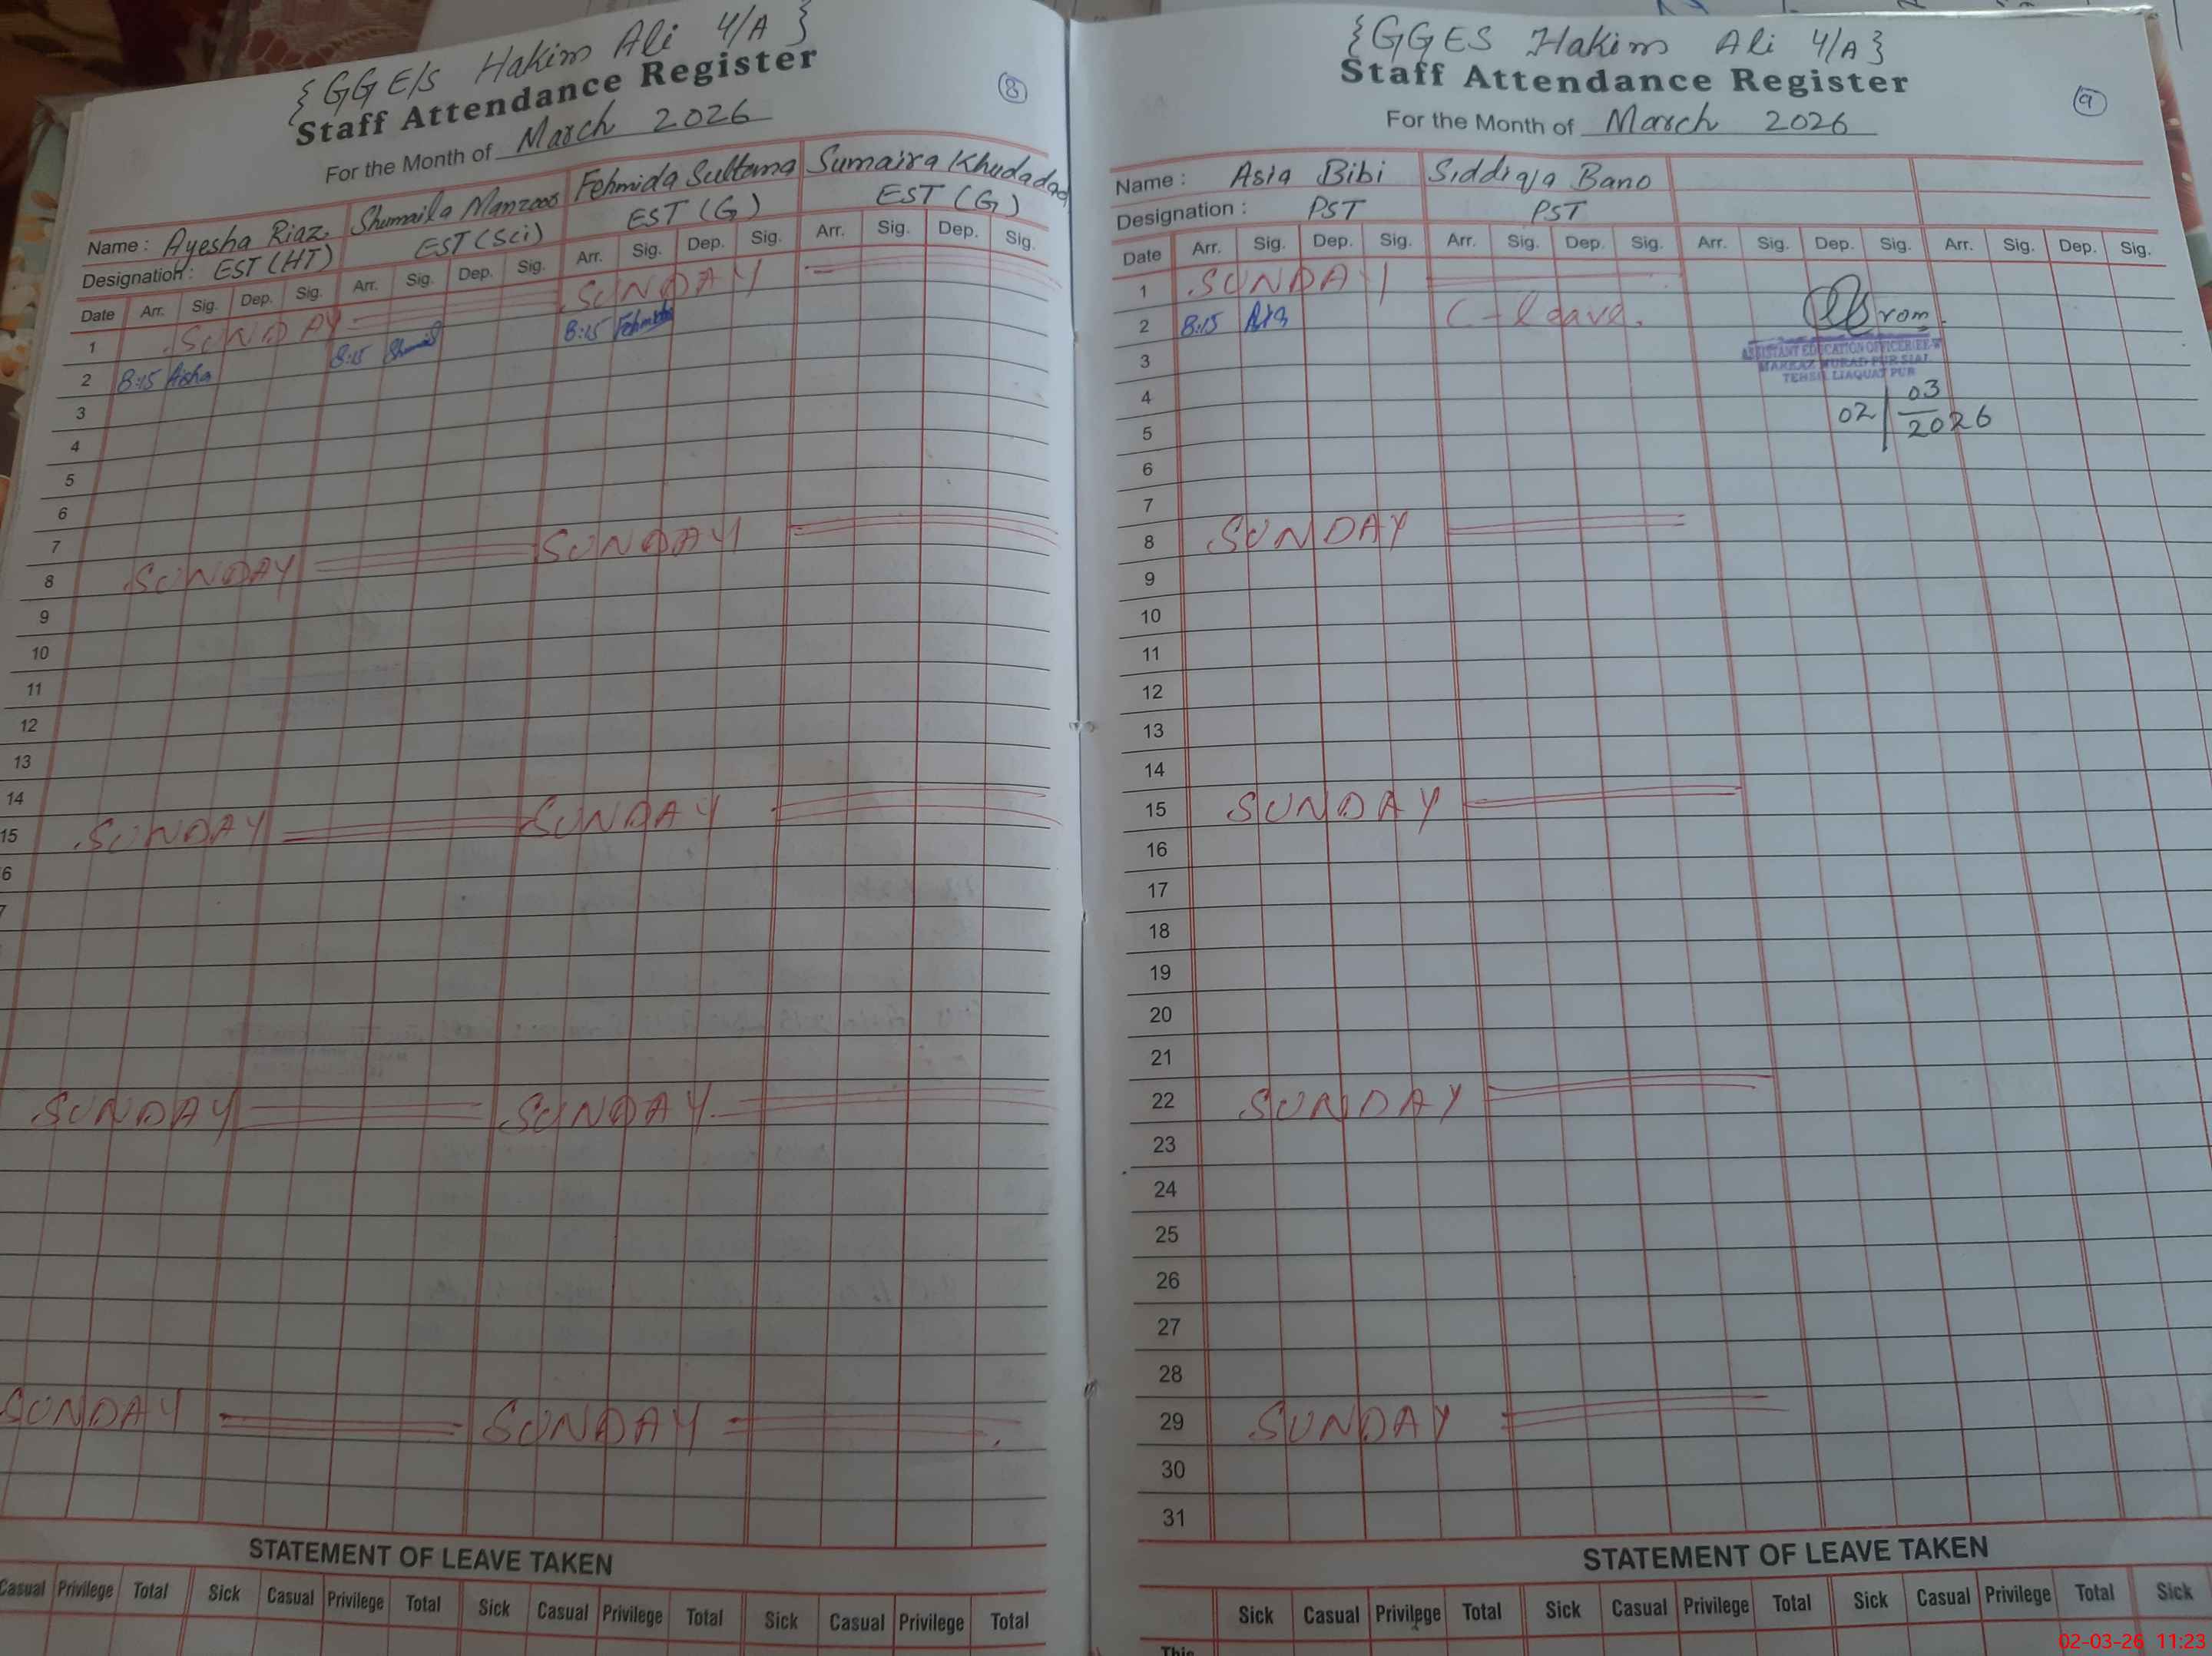 {GGE/S Hakim Ali 4/A}
Staff Attendance Register
8
For the Month of March 2026
Name: Ayesha Riaz Shumaila Manzoor Fehmida Sultana Sumaira Khudadad
Designation: EST (HT) EST (Sci) EST (G) EST (G)
Date Arr. Sig. Dep. Sig. Arr. Sig. Dep. Sig. Arr. Sig. Dep. Sig. Arr. Sig. Dep. Sig.
1 SUNDAY SUNDAY
2 8:15 Aisha 8:15 8:15
3
4
5
6
7
8 SUNDAY SUNDAY
9
10
11
12
13
14
15 SUNDAY SUNDAY
6
7
SUNDAY SUNDAY
SUNDAY SUNDAY
STATEMENT OF LEAVE TAKEN
Casual Privilege Total Sick Casual Privilege Total Sick Casual Privilege Total Sick Casual Privilege Total
{GGES Hakim Ali 4/A}
Staff Attendance Register
9
For the Month of March 2026
Name: Asia Bibi Siddiqa Bano
Designation: PST PST
Date Arr. Sig. Dep. Sig. Arr. Sig. Dep. Sig. Arr. Sig. Dep. Sig. Arr. Sig. Dep. Sig.
1 SUNDAY
2 8:15 C-leave.
3
ASSISTANT EDUCATION OFFICER (EE-W
MARKAZ MURAD PUR SIAL
TEHSIL LIAQUAT PUR
4
02/03/2026
5
6
7
8 SUNDAY
9
10
11
12
13
14
15 SUNDAY
16
17
18
19
20
21
22 SUNDAY
23
24
25
26
27
28
29 SUNDAY
30
31
STATEMENT OF LEAVE TAKEN
Sick Casual Privilege Total Sick Casual Privilege Total Sick Casual Privilege Total Sick
This
02-03-26 11:23